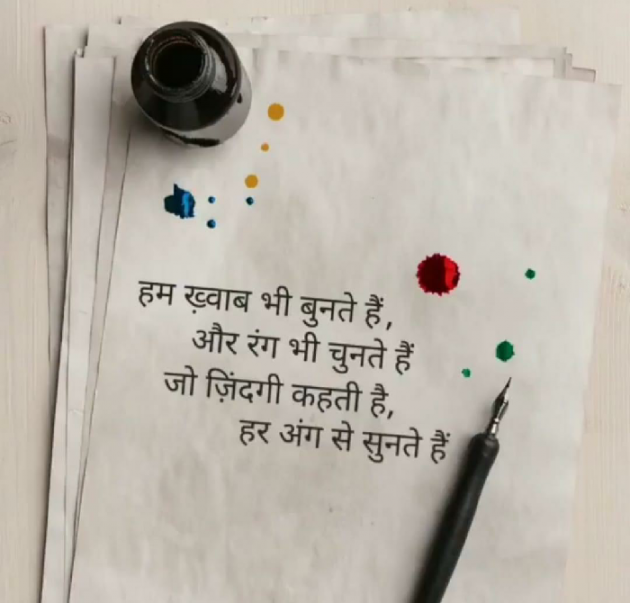 हम ख़्वाब भी बुनते हैं,
और रंग भी चुनते हैं
जो ज़िंदगी कहती है,
हर अंग से सुनते हैं